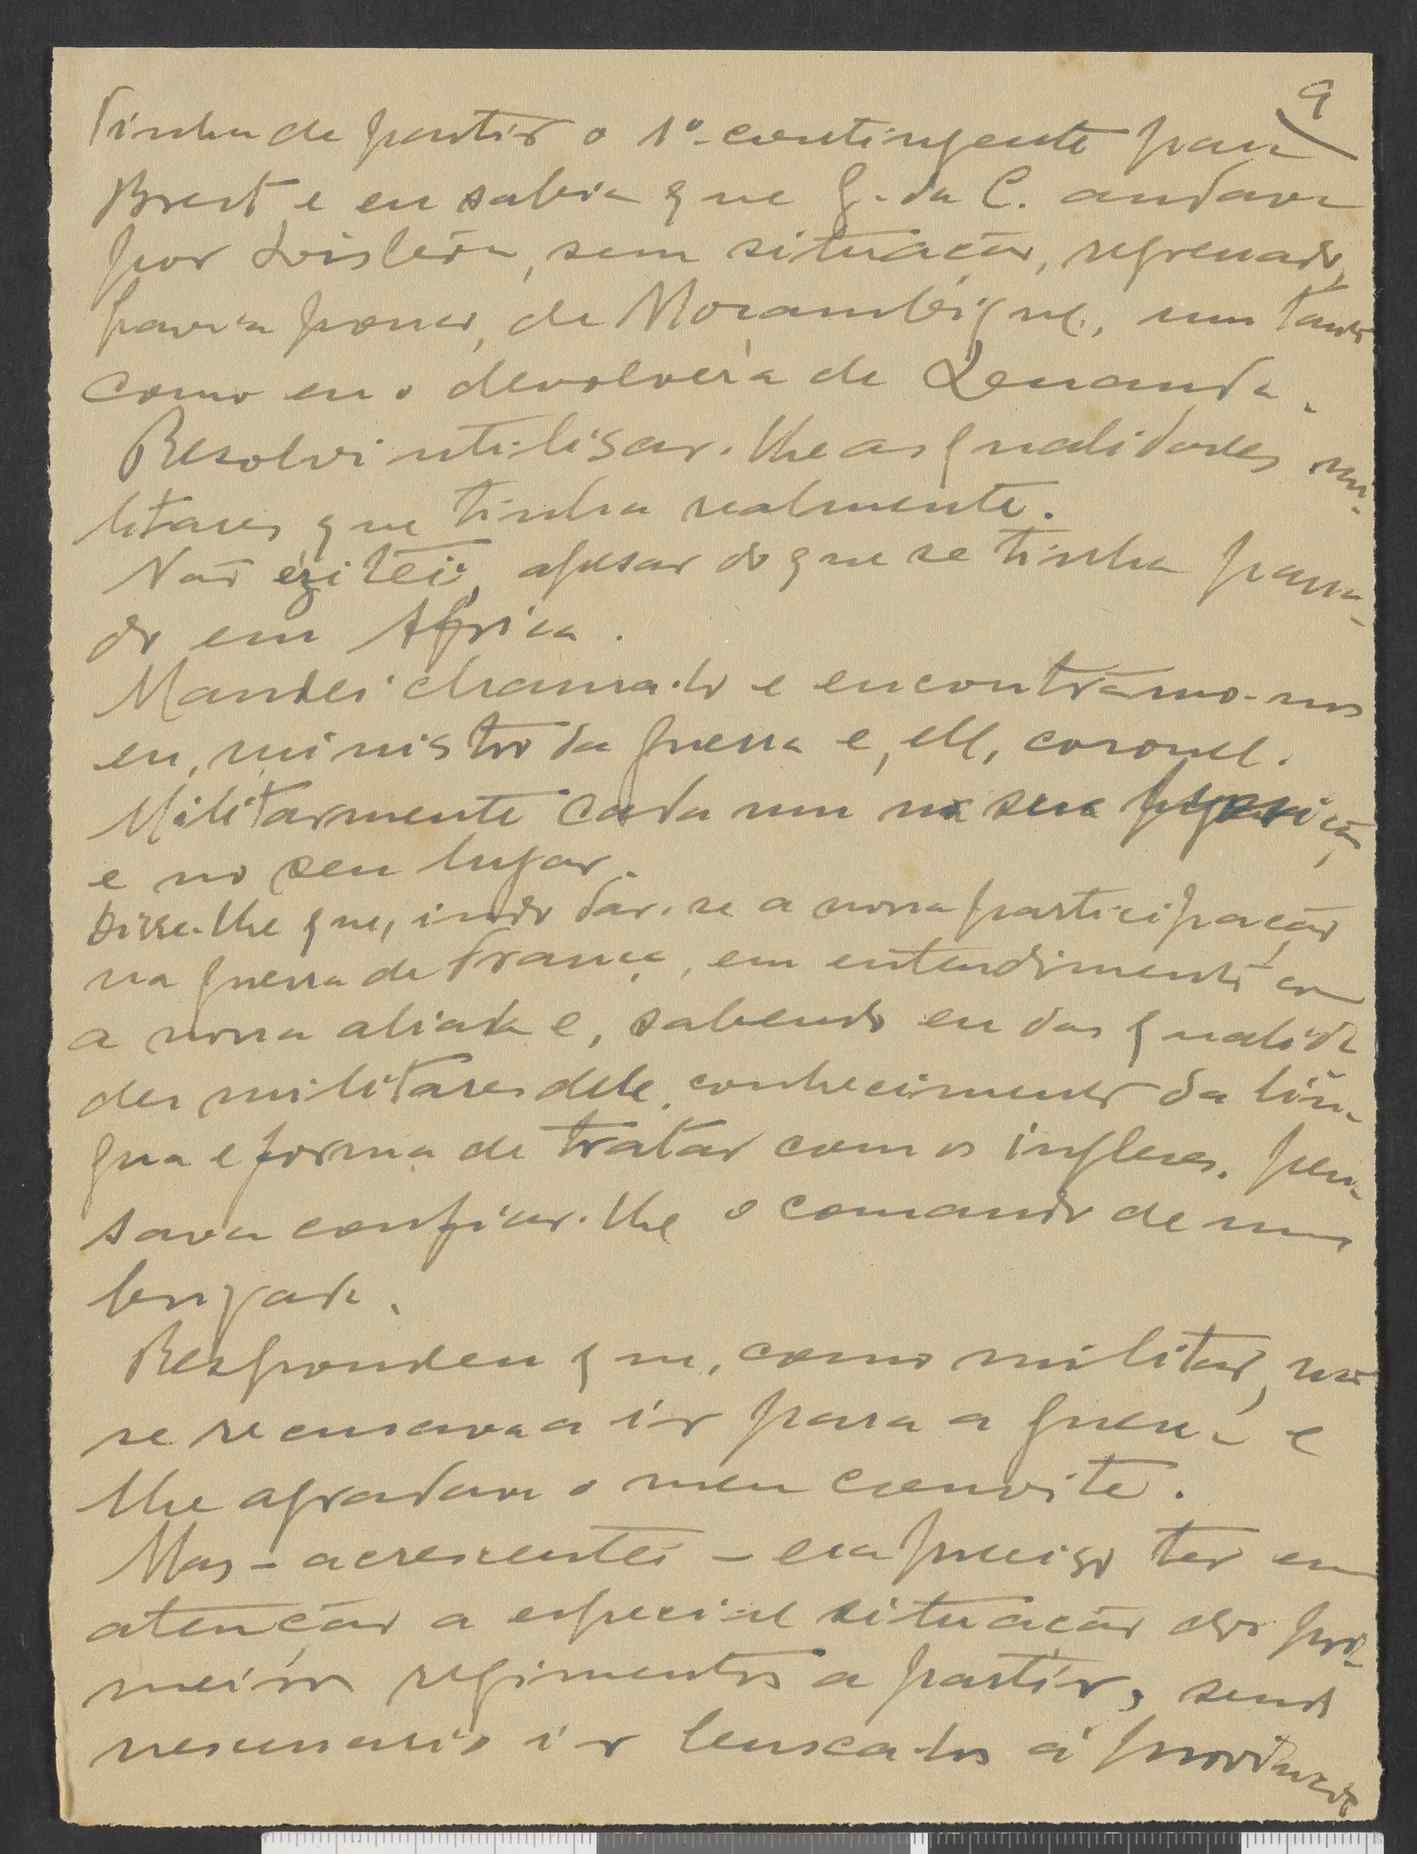 9
Tinha de partir o 1º contingente para
Brest e eu sabia que G. da C. andava
por Lisbôa, sem situação, regressado,
havia pouco, de Moçambique, um tanto
como eu o devolvera de Loanda.
Resolvi utilisar-lhe as qualidades mi-
litares que tinha realmente.
Não ezitei, apesar do que se tinha passa-
do em Africa.
Mandei chama-lo e encontrámo-nos
eu, ministro da guerra e, ele, coronel.
Militarmente cada um na sua posição
e no seu lugar.
Disse-lhe que, indo dar-se a nossa participação
na guerra de França, em entendimento com
a nossa aliada e, sabendo eu das qualida
des militares dele, conhecimento da lín-
gua e forma de tratar com os ingleses, pen-
sava confiar-lhe o comando de uma
brigada.
Respondeu que, como militar, não
se recusava a ir para a guerra e
lhe agradava o meu convite.
Mas - acrescentei - era preciso ter em
atenção a especial situação dos pri-
meiros regimentos a partir, sendo
necessario ir busca-los á provincia